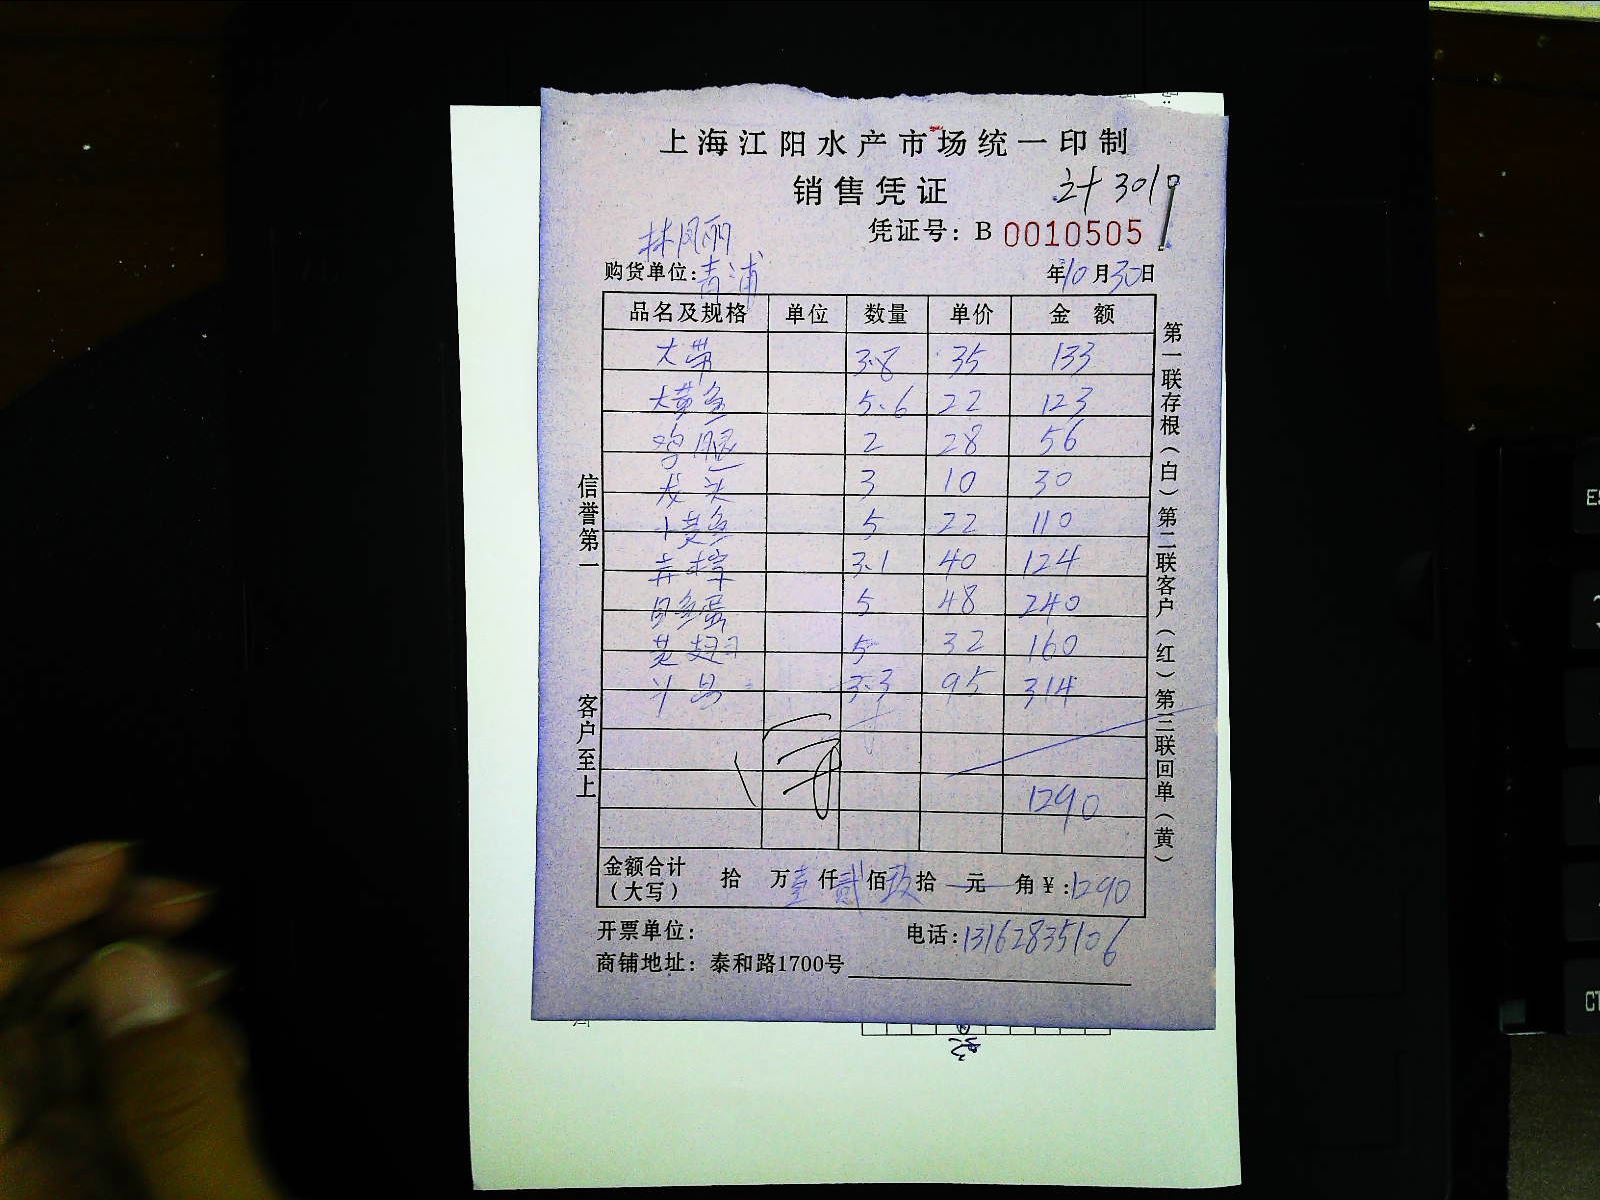 上海江阳水产市场统一印制
销售凭证
计3010
凭证号: B 0010505
林凤丽
购货单位: 青浦
年10月30日
品名及规格 单位 数量 单价 金额
大带 3.8 35 133
大黄鱼 5.6 22 123
鸡腿 2 28 56
龙头 3 10 30
小黄鱼 5 22 110
3.1 40 124
5 48 240
5 32 160
3.3 95 314
1290
金额合计（大写） 拾 万壹仟贰佰玖拾 元 角￥:1290
开票单位:
电话:13162835106
商铺地址: 泰和路1700号
信誉第一
客户至上
第一联存根（白）第二联客户（红）第三联回单（黄）